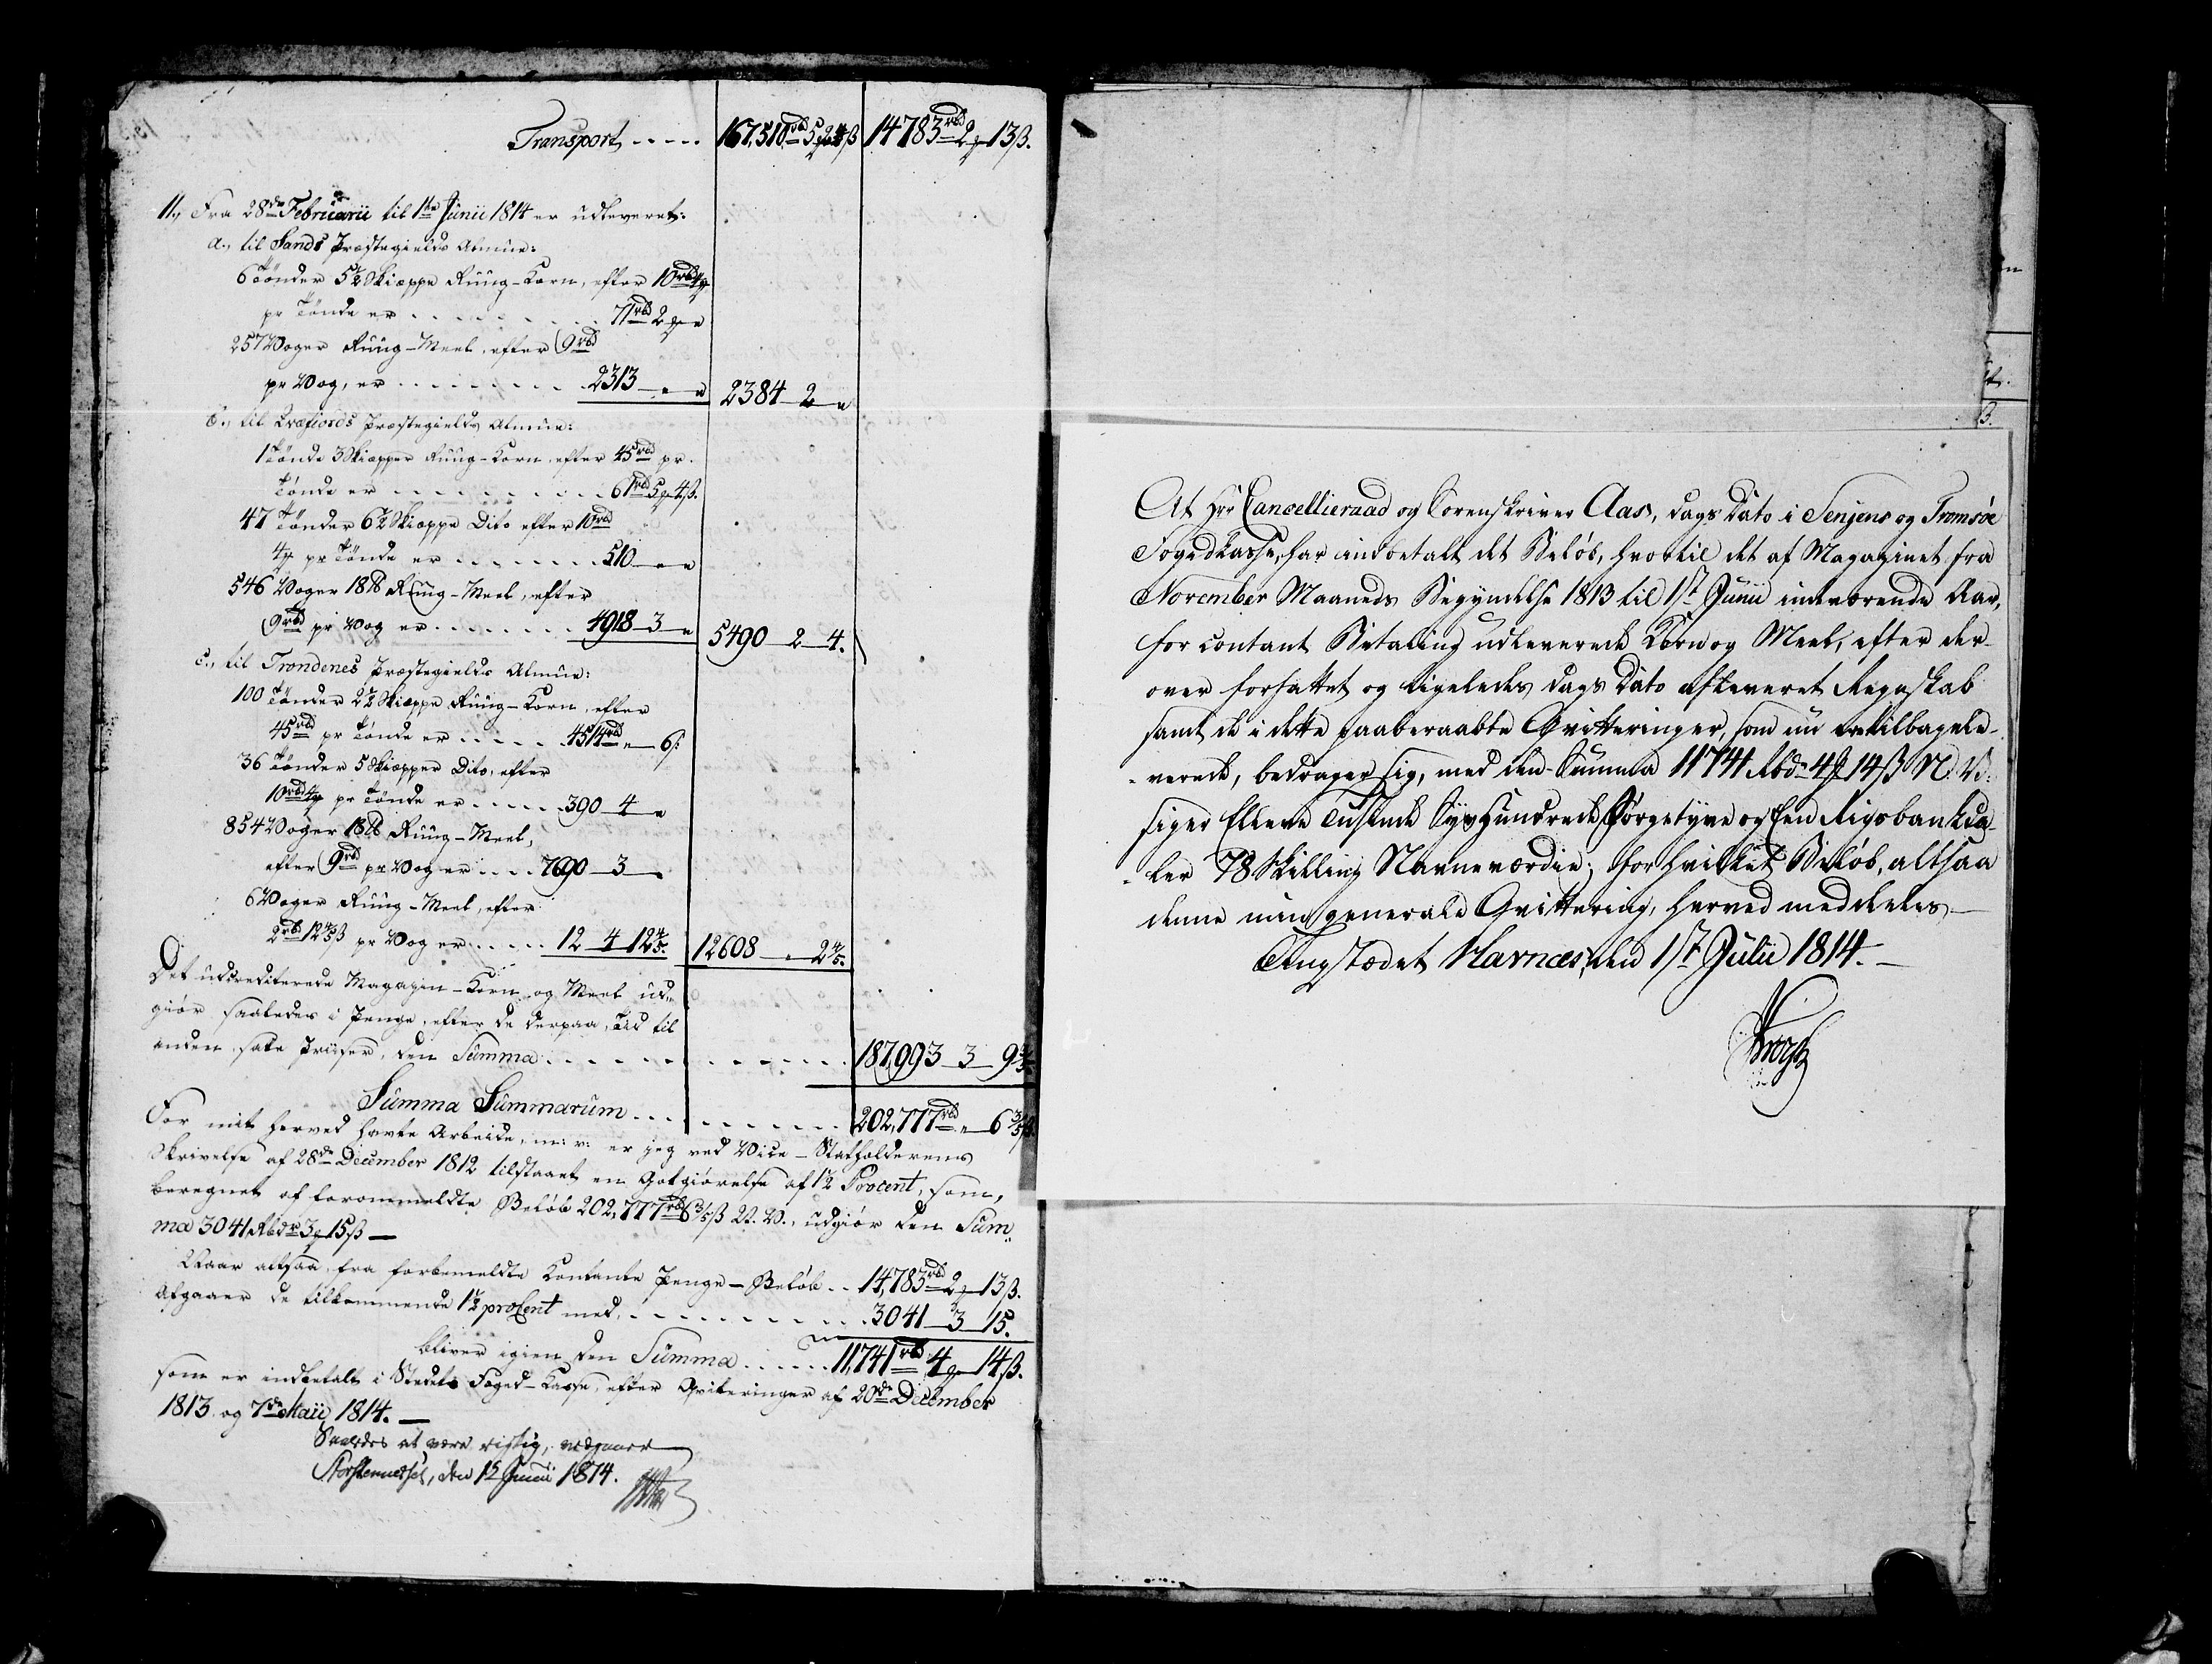 Transport ----- 167,510rbd 5 ₰ 4 ß 14783rbd 2 ₰ 13 ß.
11., Fra 28de Februarii til 1ste Junii 1814 er udleveret:
a., til Sands Præstegields Almue:
6 Tønder 5½ Skiæppe Ruug-Korn, efter 10rbd 4 ₰
pr Tønde er . . . . . . 71rbd 2 ₰ "
257 Voger Ruug-Meel, efter 9rbd
pr Vog, er . . . . . . 2313 - " - " 2384 - 2 - "
b., til Qvæfiords Præstegields Almue:
1 Tønde 3 Skiæpper Ruug-Korn, efter 45rbd pr.
Tønde er . . . . . . 61rbd 5 ₰ 4 ß.
47 Tønder 6½ Skiæppe Dito efter 10rbd
4 ₰ pr Tønde er . . . . . . 510 - " - "
546 Voger 18 ℔ Ruug-Meel, efter
9rbd pr Vog er . . . . . . 4918 - 3 - " 5490 - 2 - 4.
c., til Trondenes Præstegields Almue:
100 Tønder 2½ Skiæppe Ruug-Korn, efter
45rbd pr Tønde er . . . . . 4514rbd " - 6:
36 Tønder 5 Skiæpper Dito, efter
10rbd 4 ₰ pr Tønde er . . . . . 390 - 4 - "
854 Voger 18 ℔ Ruug-Meel,
efter 9rbd pr Vog er . . . . 7690 - 3 - "
6 Voger Ruug-Meel, efter
2rbd 12 4/5 ß pr Vog er . . . . . 12 - 4 - 12 4/5. 12608 - " - 2 4/5.
Det udcrediterede Magazin-Korn og Meel ud-
giør saaledes i Penge, efter de derpaa, Tid til
anden satte Priiser, den Summa . . . . . . 187,993 - 3 - 9 3/5
Summa Summarum . . . . . . 202,777rbd " - 6 3/5 ß.
For mit herved havte Arbeide, m: v: er jeg ved Vice-Statholderens
Skrivelse af 28de December 1812 tilstaaet en Godtgiørelse af 1½ Procent, som,
beregnet af forommeldte Beløb 202,777rbd 6 3/5 ß N. V., udgiør den Sum-
ma 3041 Rbdr 3 ₰ 15 ß —
Naar altsaa, fra forbemeldte Contante Penge-Beløb . . 14,783rbd 2 ₰ 13 ß.
Afgaaer de tilkommende 1½ proCent med . . . . . . 3041 - 3 - 15.
bliver igien den Summa . . . . . . 11,741rbd 4 ₰ 14 ß.
som er indbetalt i Stedets Foged-Casse, efter Qvitteringer af 20de December
1813 og 7de Maii 1814. —
Saaledes at være rigtig, vedgaaer
Storstennæsset, den 1ste Junii 1814.
At Hrr Cancellieraad og Sorenskriver Aas, dags Dato i Senjens og Tromsöe
Fogedkasse, har indbetalt det Beløb, hvortil det af Magazinet fra
November Maaneds Begyndelse 1813 til 1ste Junii indeværende Aar,
for contant Betaling udleverede Korn og Meel, efter der-
over forfattet og ligeledes dags Dato afleveret Regnskab
samt de i dette paaberaabte Qvitteringer, som nu ere tilbagele-
verede, bedrager sig, med den Summa 11741 Rbd 4 ₰ 14 ß N. V:
siger Elleve Tusinde Syv Hundrede Førgetyve og Een Rigsbankda-
ler 78 Skilling Navneværdie; for hvilket Beløb, altsaa
denne min generale Qvittering, herved meddeles —
Tingstædet Havnæs, den 1ste Julii 1814. —